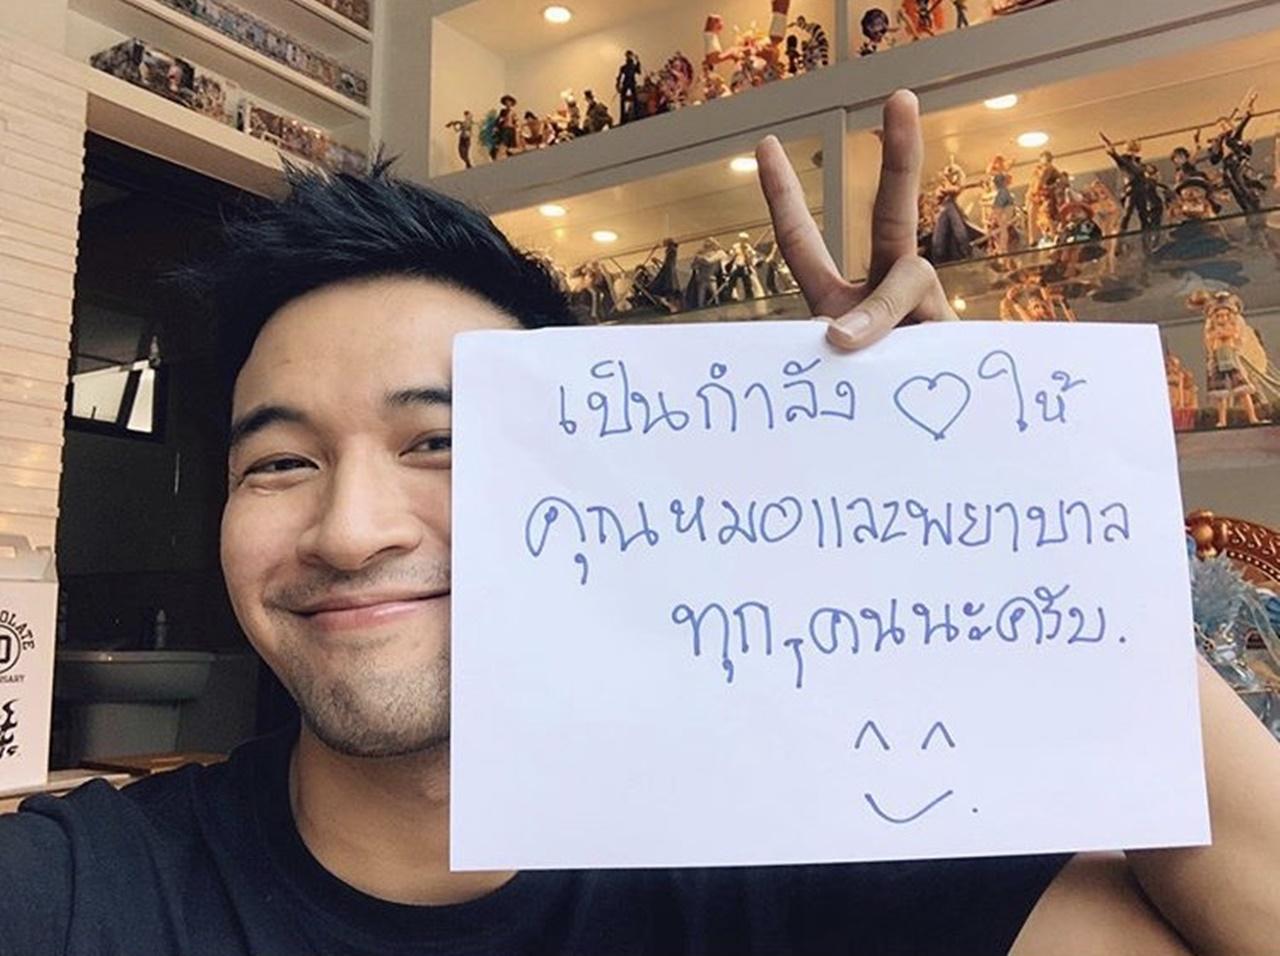 เป็นกำลัง ♡ ให้
คุณหมอและพยาบาล
ทุก ๆ คนนะครับ.
^ ^